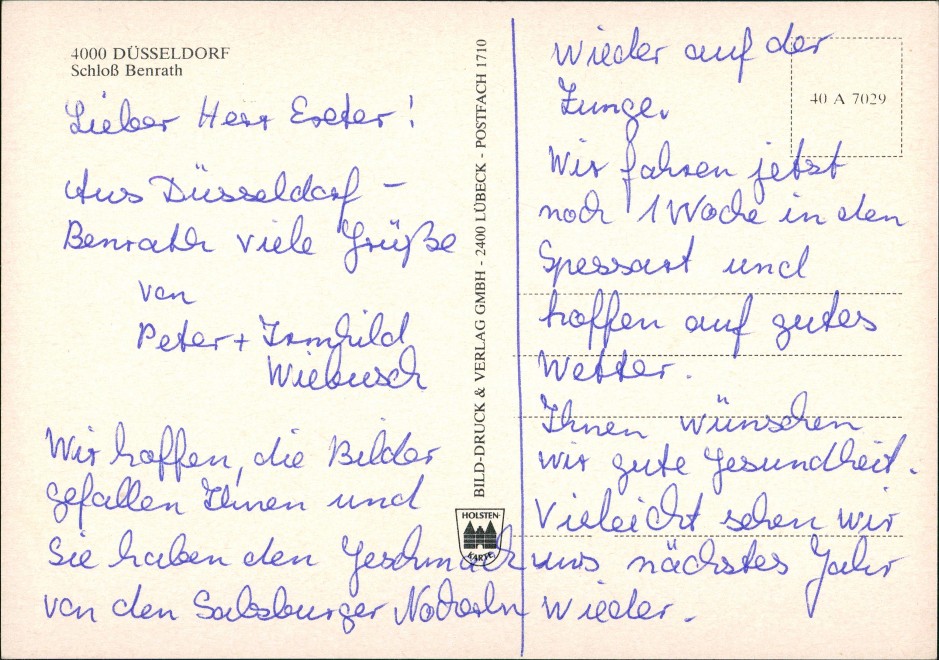 4000 DÜSSELDORF
Schloß Benrath
Lieber Herr Exeter!
Aus Düsseldorf –
Benrath viele Grüße
von
Peter + Irmhild
Wiebusch
Wir hoffen, die Bilder
gefallen Ihnen und
Sie haben den Geschmack
von den Salzburger Nockerln
BILD-DRUCK & VERLAG GMBH - 2400 LÜBECK - POSTFACH 1710
HOLSTEN-
KARTE
40 A 7029
wieder auf der
Zunge.
Wir fahren jetzt
noch 1 Woche in den
Spessart und
hoffen auf gutes
Wetter.
Ihnen wünschen
wir gute Gesundheit.
Vieleicht sehen wir
uns nächstes Jahr
wieder.